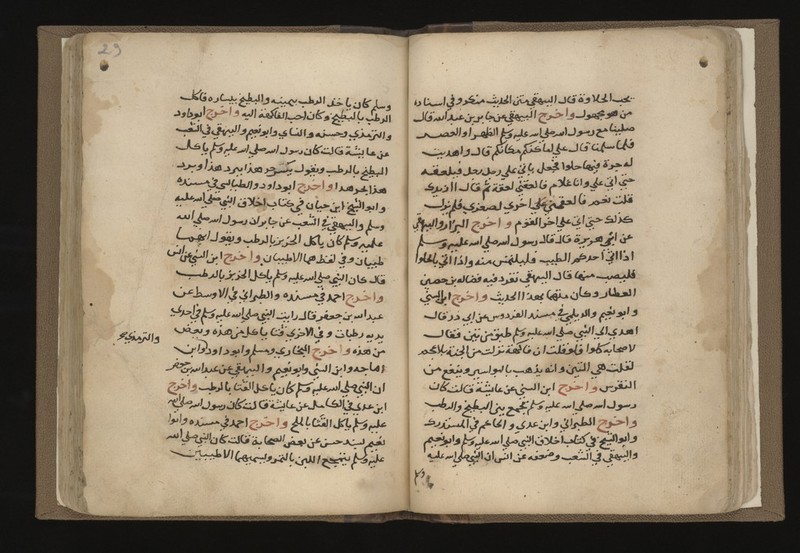 يحب الحلاوة قال البيهقي متن الحديث منكر وفي اسناده
من هو مجهول واخرج البيهقي عن جابر بن عبد الله قال
صلينا مع رسول الله صلى الله عليه وسلم الظهر او العصر
فلما سلمنا قال على اماكنكم مكانكم قال واهديت
له جرة فيها حلوا فجعل ياتي على رجل رجل فيلعقه
حتى اتى علي وانا غلام فالعقني لعقة ثم قال ازيدك
قلت نعم فالعقني اخرى لصغري فلم يزل
كذلك حتى اتى على اخر القوم واخرج البزار والبيهقي
عن ابي هريرة قال قال رسول الله صلى الله عليه وسلم
اذا اتي احدكم الطيب فليمس منه واذا اتي بالحلوا
فليصب منها قال البيهقي تفرد فيه فضالة بن حصين
العطار وكان متهما بهذا الحديث واخرج ابن السني
وابو نعيم والديلمي في مسند الفردوس عن ابي ذر قال
اهدي الى النبي صلى الله عليه وسلم طبق من تين فقال
لاصحابه كلوا فلو قلت ان فاكهة نزلت من الجنة بلا عجم
لقلت هي التين وانه يذهب بالبواسير وينفع من
النقرس واخرج ابن السني عن عائشة قالت كان
رسول الله صلى الله عليه وسلم يجمع بين البطيخ والرطب
واخرج الطبراني وابن عدي والحاكم في المستدرك
وابو الشيخ في كتاب اخلاق النبي صلى الله عليه وسلم وابو نعيم
والبيهقي في الشعب وضعفه عن انس ان النبي صلى الله عليه
29
وسلم كان ياخذ الرطب بيمينه والبطيخ بيساره فياكل
الرطب بالبطيخ وكان احب الفاكهة اليه واخرج ابو داود
والترمذي وحسنه والنساي وابو نعيم والبيهقي في الشعب
عن عايشة قالت كان رسول الله صلى الله عليه وسلم ياكل
البطيخ بالرطب ويقول يكسر حر هذا ببرد هذا وبرد
هذا بحر هذا واخرج ابو داود والطيالسي في مسنده
وابو الشيخ ابن حيان في كتاب اخلاق النبي صلى الله عليه
وسلم والبيهقي في الشعب عن جابر ان رسول الله صلى الله
عليه وسلم كان ياكل الخربز بالرطب ويقول انهما
طيبان وفي لفظ هما الاطيبان واخرج ابن السني عن انس
قال كان النبي صلى الله عليه وسلم ياكل الخربز بالرطب
واخرج احمد في مسنده والطبراني في الاوسط عن
عبد الله بن جعفر قال رايت النبي صلى الله عليه وسلم في احدى
يديه رطبات وفي الاخرى قثا ياكل من هذه وبعض
من هذه واخرج البخاري ومسلم وابو داود وابن
والترمذي
ماجه وابن السني وابو نعيم والبيهقي عن عبد الله بن جعفر
ان النبي صلى الله عليه وسلم كان ياكل القثا بالرطب واخرج
ابن عدي في الكامل عن عائشة قالت كان رسول الله صلى الله
عليه وسلم ياكل القثا بالملح واخرج احمد في مسنده وابو
نعيم بسند حسن عن بعض الصحابة قالت كان النبي صلى الله
عليه وسلم يتمجع اللبن بالتمر ويسميهما الاطيبين